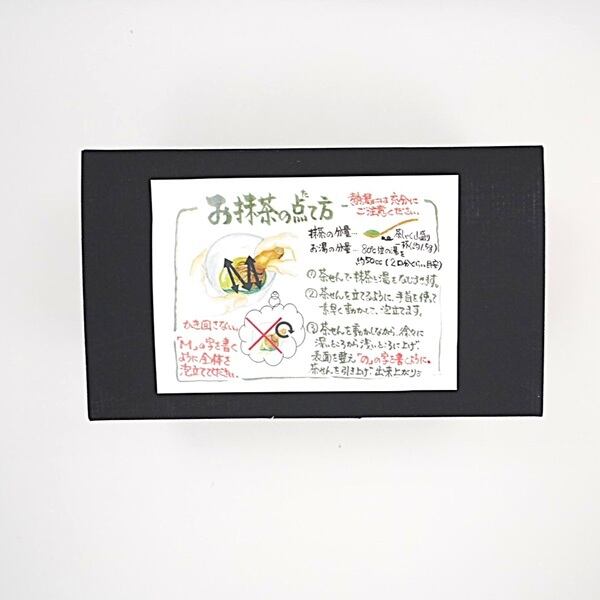 お抹茶の点て方
た
熱湯には充分に
ご注意ください。
抹茶の分量… 茶しゃく山盛り
一杯(約1.5g)
お湯の分量… 80℃位の湯を
約50cc(2口分くらい目安)
①茶せんで抹茶と湯をなじませます。
②茶せんを立てるように、手首を使って
素早く動かして、泡立てます。
③茶せんを動かしながら、徐々に
深いところから浅いところに上げ、
表面を整え「の」の字を書くように、
茶せんを引き上げ出来上がり
かき回さない。
「M」の字を書く
ように全体を
泡立ててください。